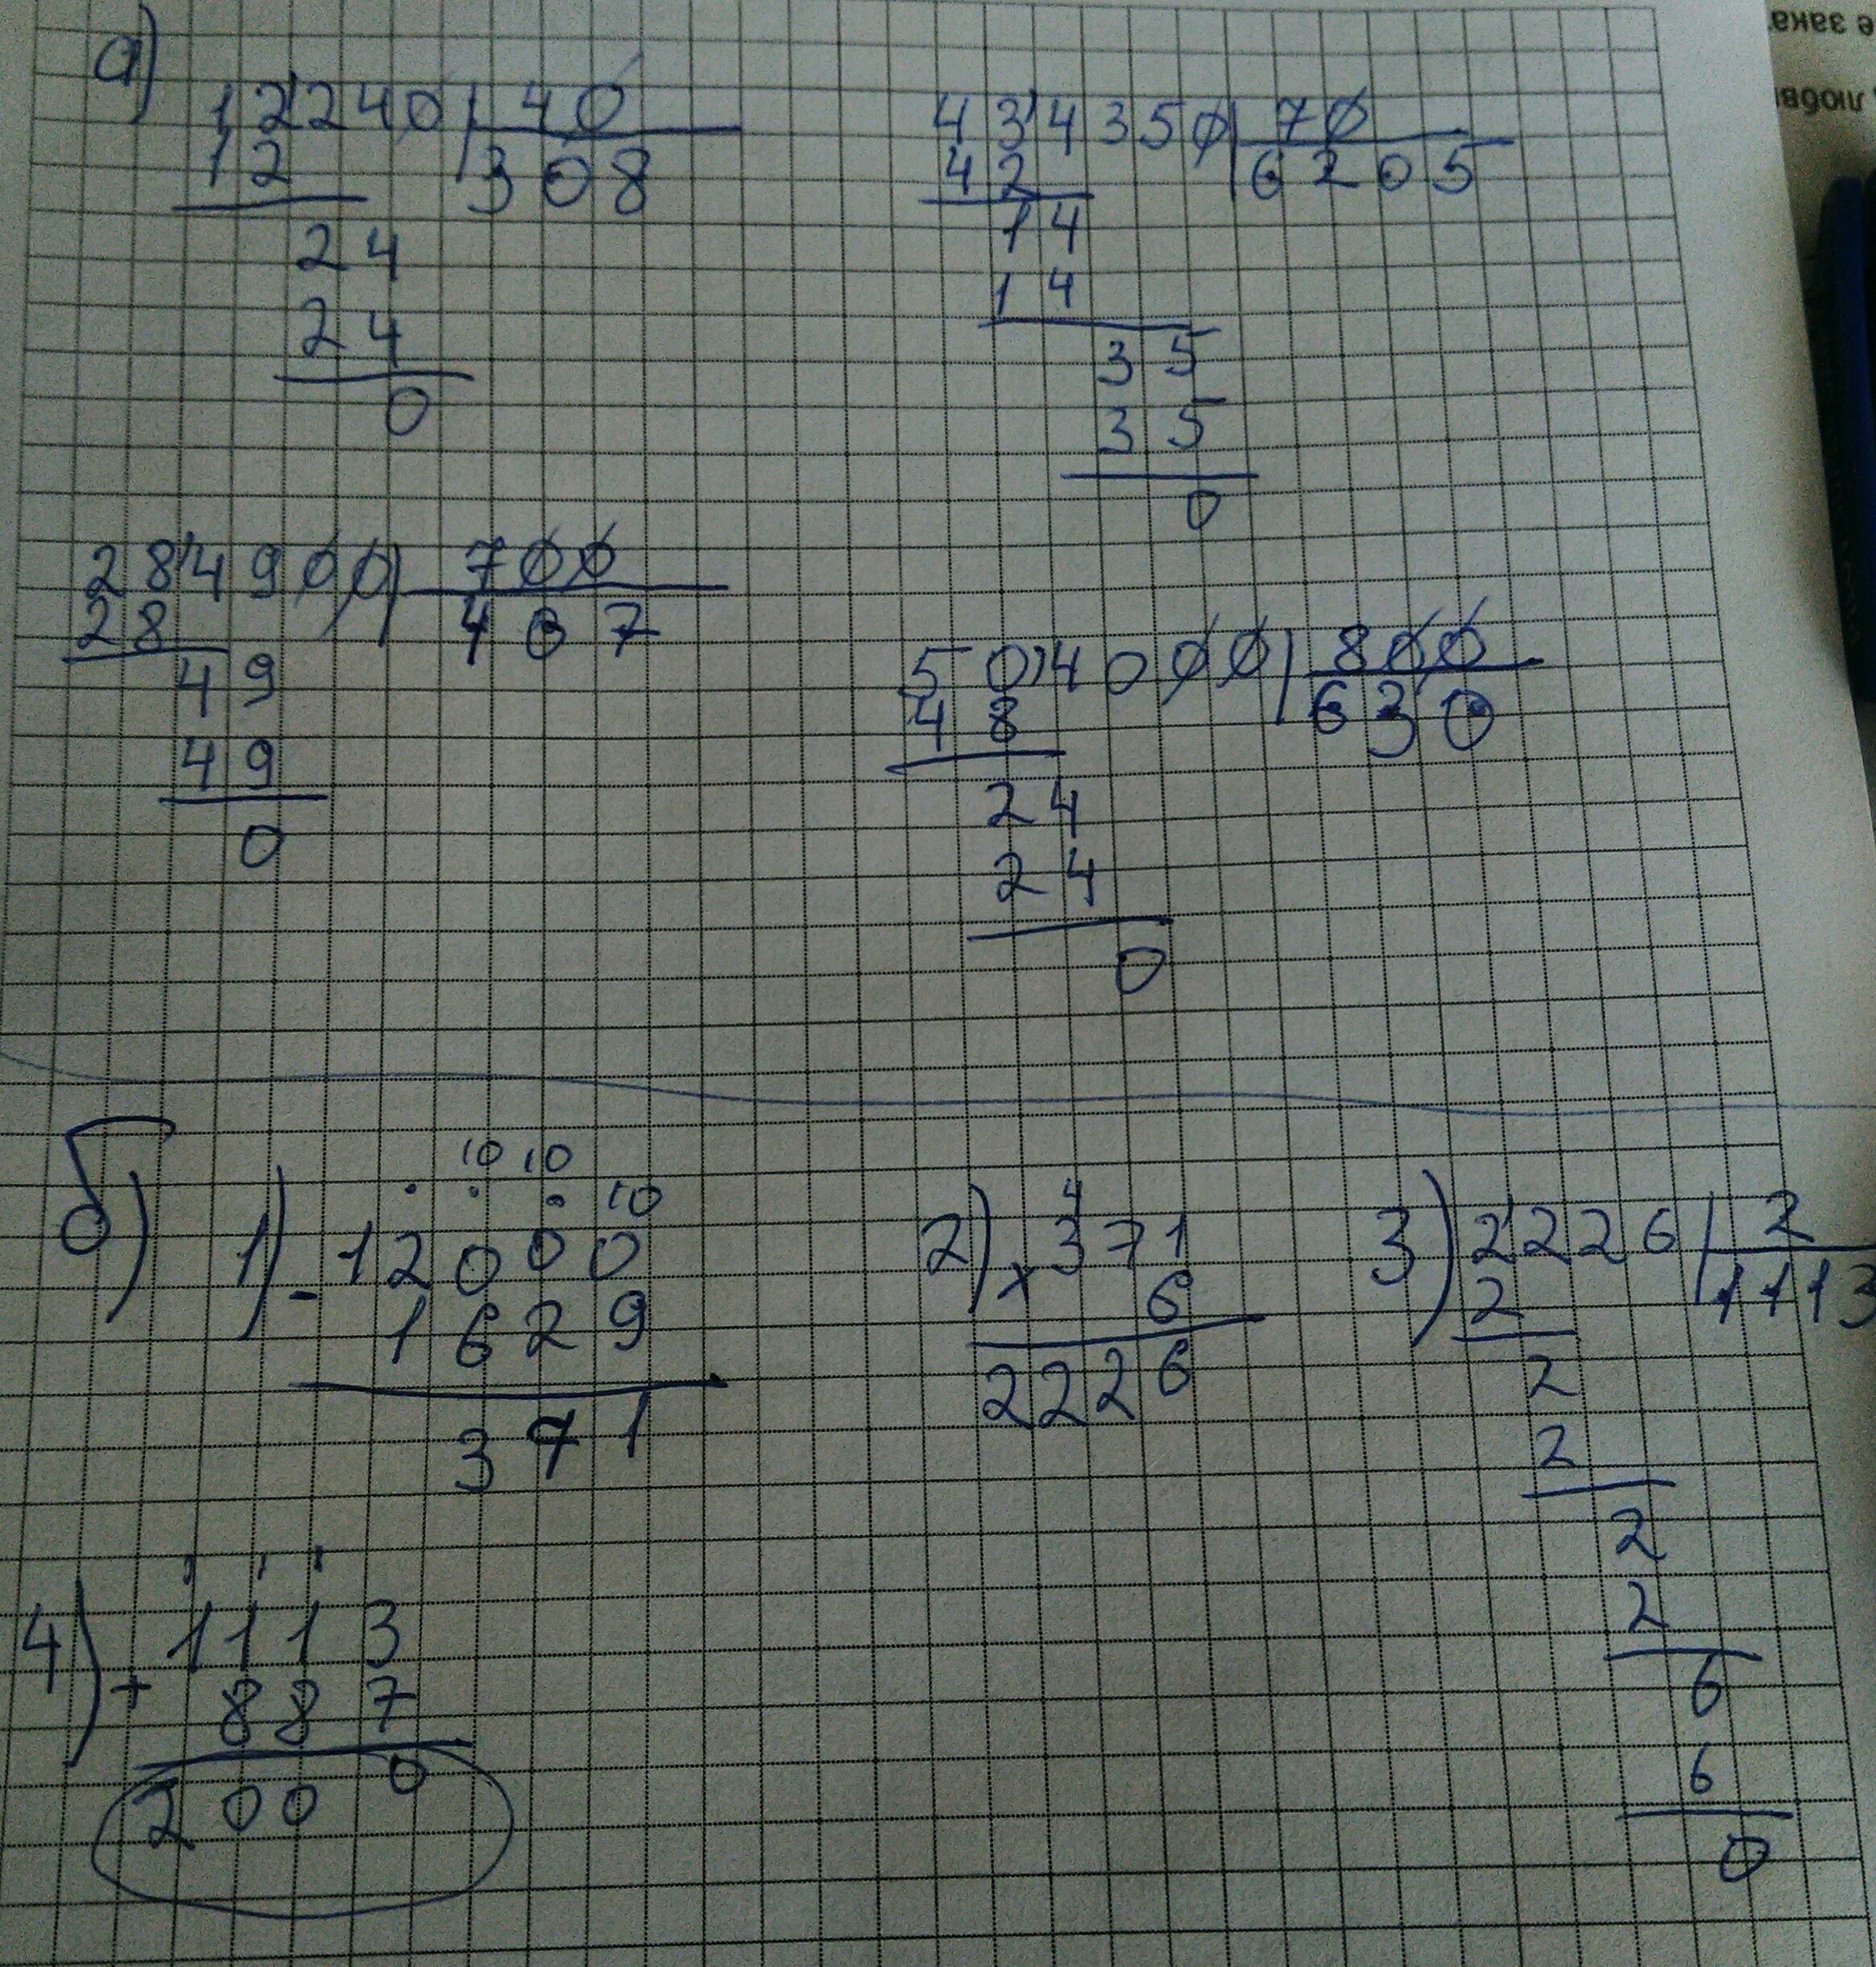 а)
12240 | 40
12 308
24
24
0
434350 | 70
42 6205
14
14
35
35
0
284900 | 700
28 407
49
49
0
504000 | 800
48 630
24
24
0
б)
1)
10 10
10
- 12000
1629
371
2)
4
x 371
6
2226
3) 2226 | 2
2 1113
2
2
2
2
6
6
0
4)
1 1 1
+ 1113
887
2000
е зака
любв